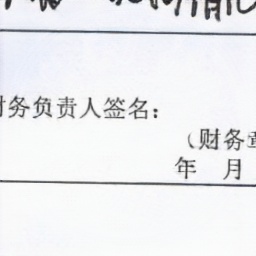 财务负责人签名：
（财务章
年 月